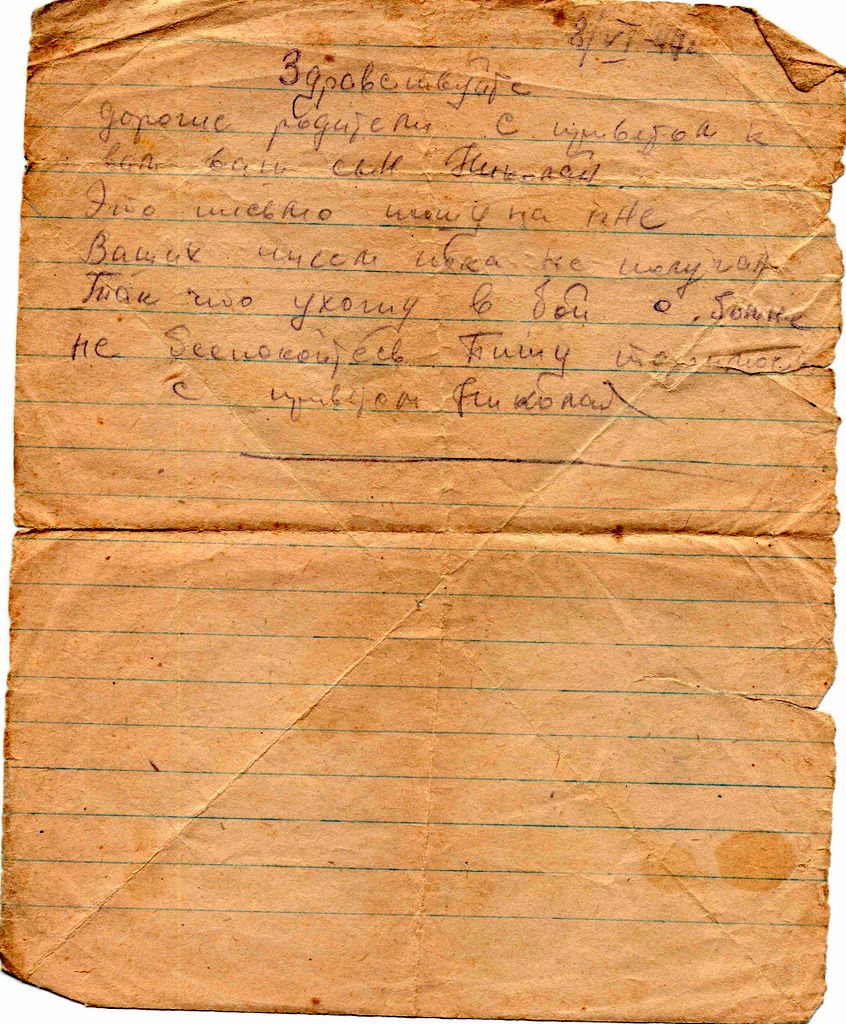 Здравствуйте
дорогие родители с приветом к
вам ваш сын Николай.
Это письмо пишу на
Ваших писем пока не получал
Так что ухожу в бой о
не беспокойтесь Пишу
с приветом Николай